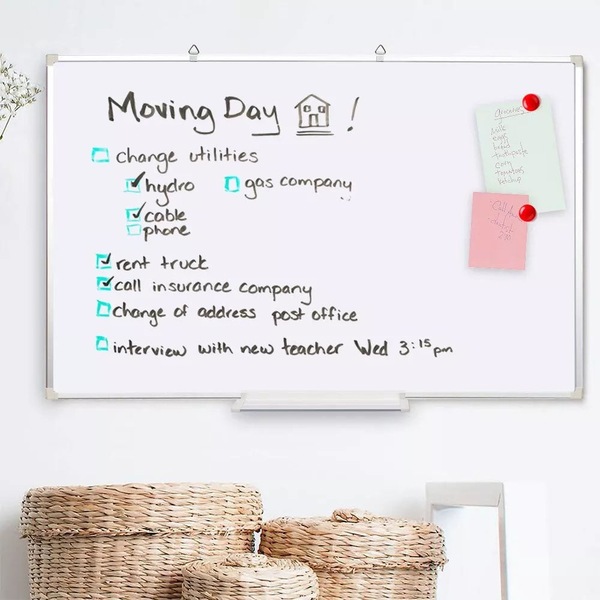 Moving Day !
change utilities
hydro gas company
cable
phone
rent truck
call insurance company
change of address post office
interview with new teacher Wed 3:15pm
Groceries
milk
eggs
bread
toothpaste
corn
tomatoes
ketchup